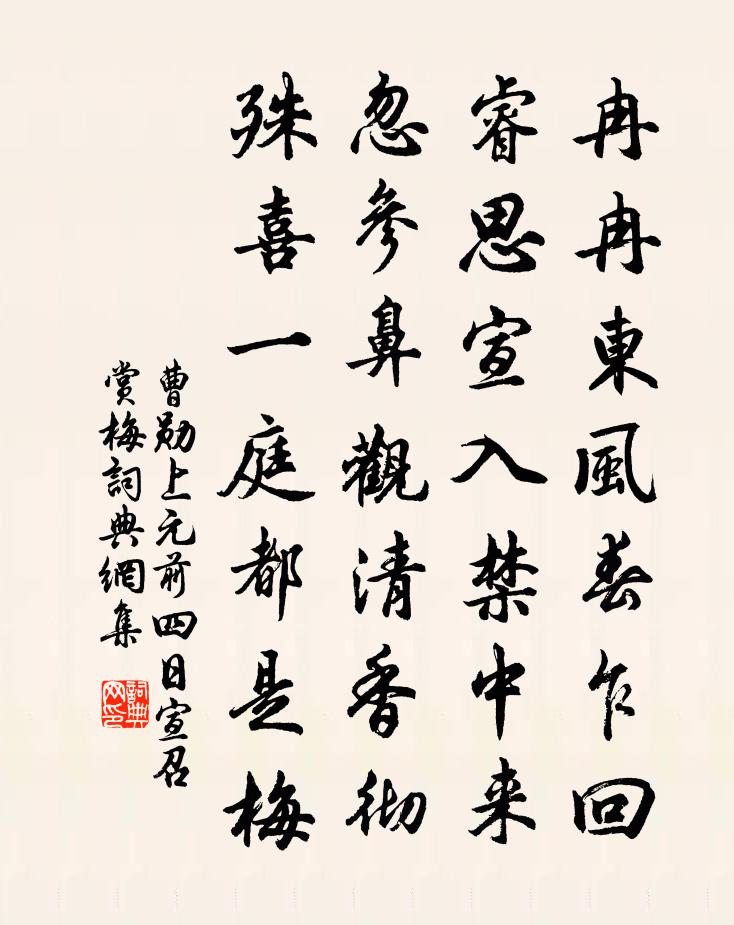 冉冉東風春乍回
睿思宣入禁中来
忽參鼻觀清香彻
殊喜一庭都是梅
曹勛上元前四日宣召
賞梅詞典網集
詞典网印